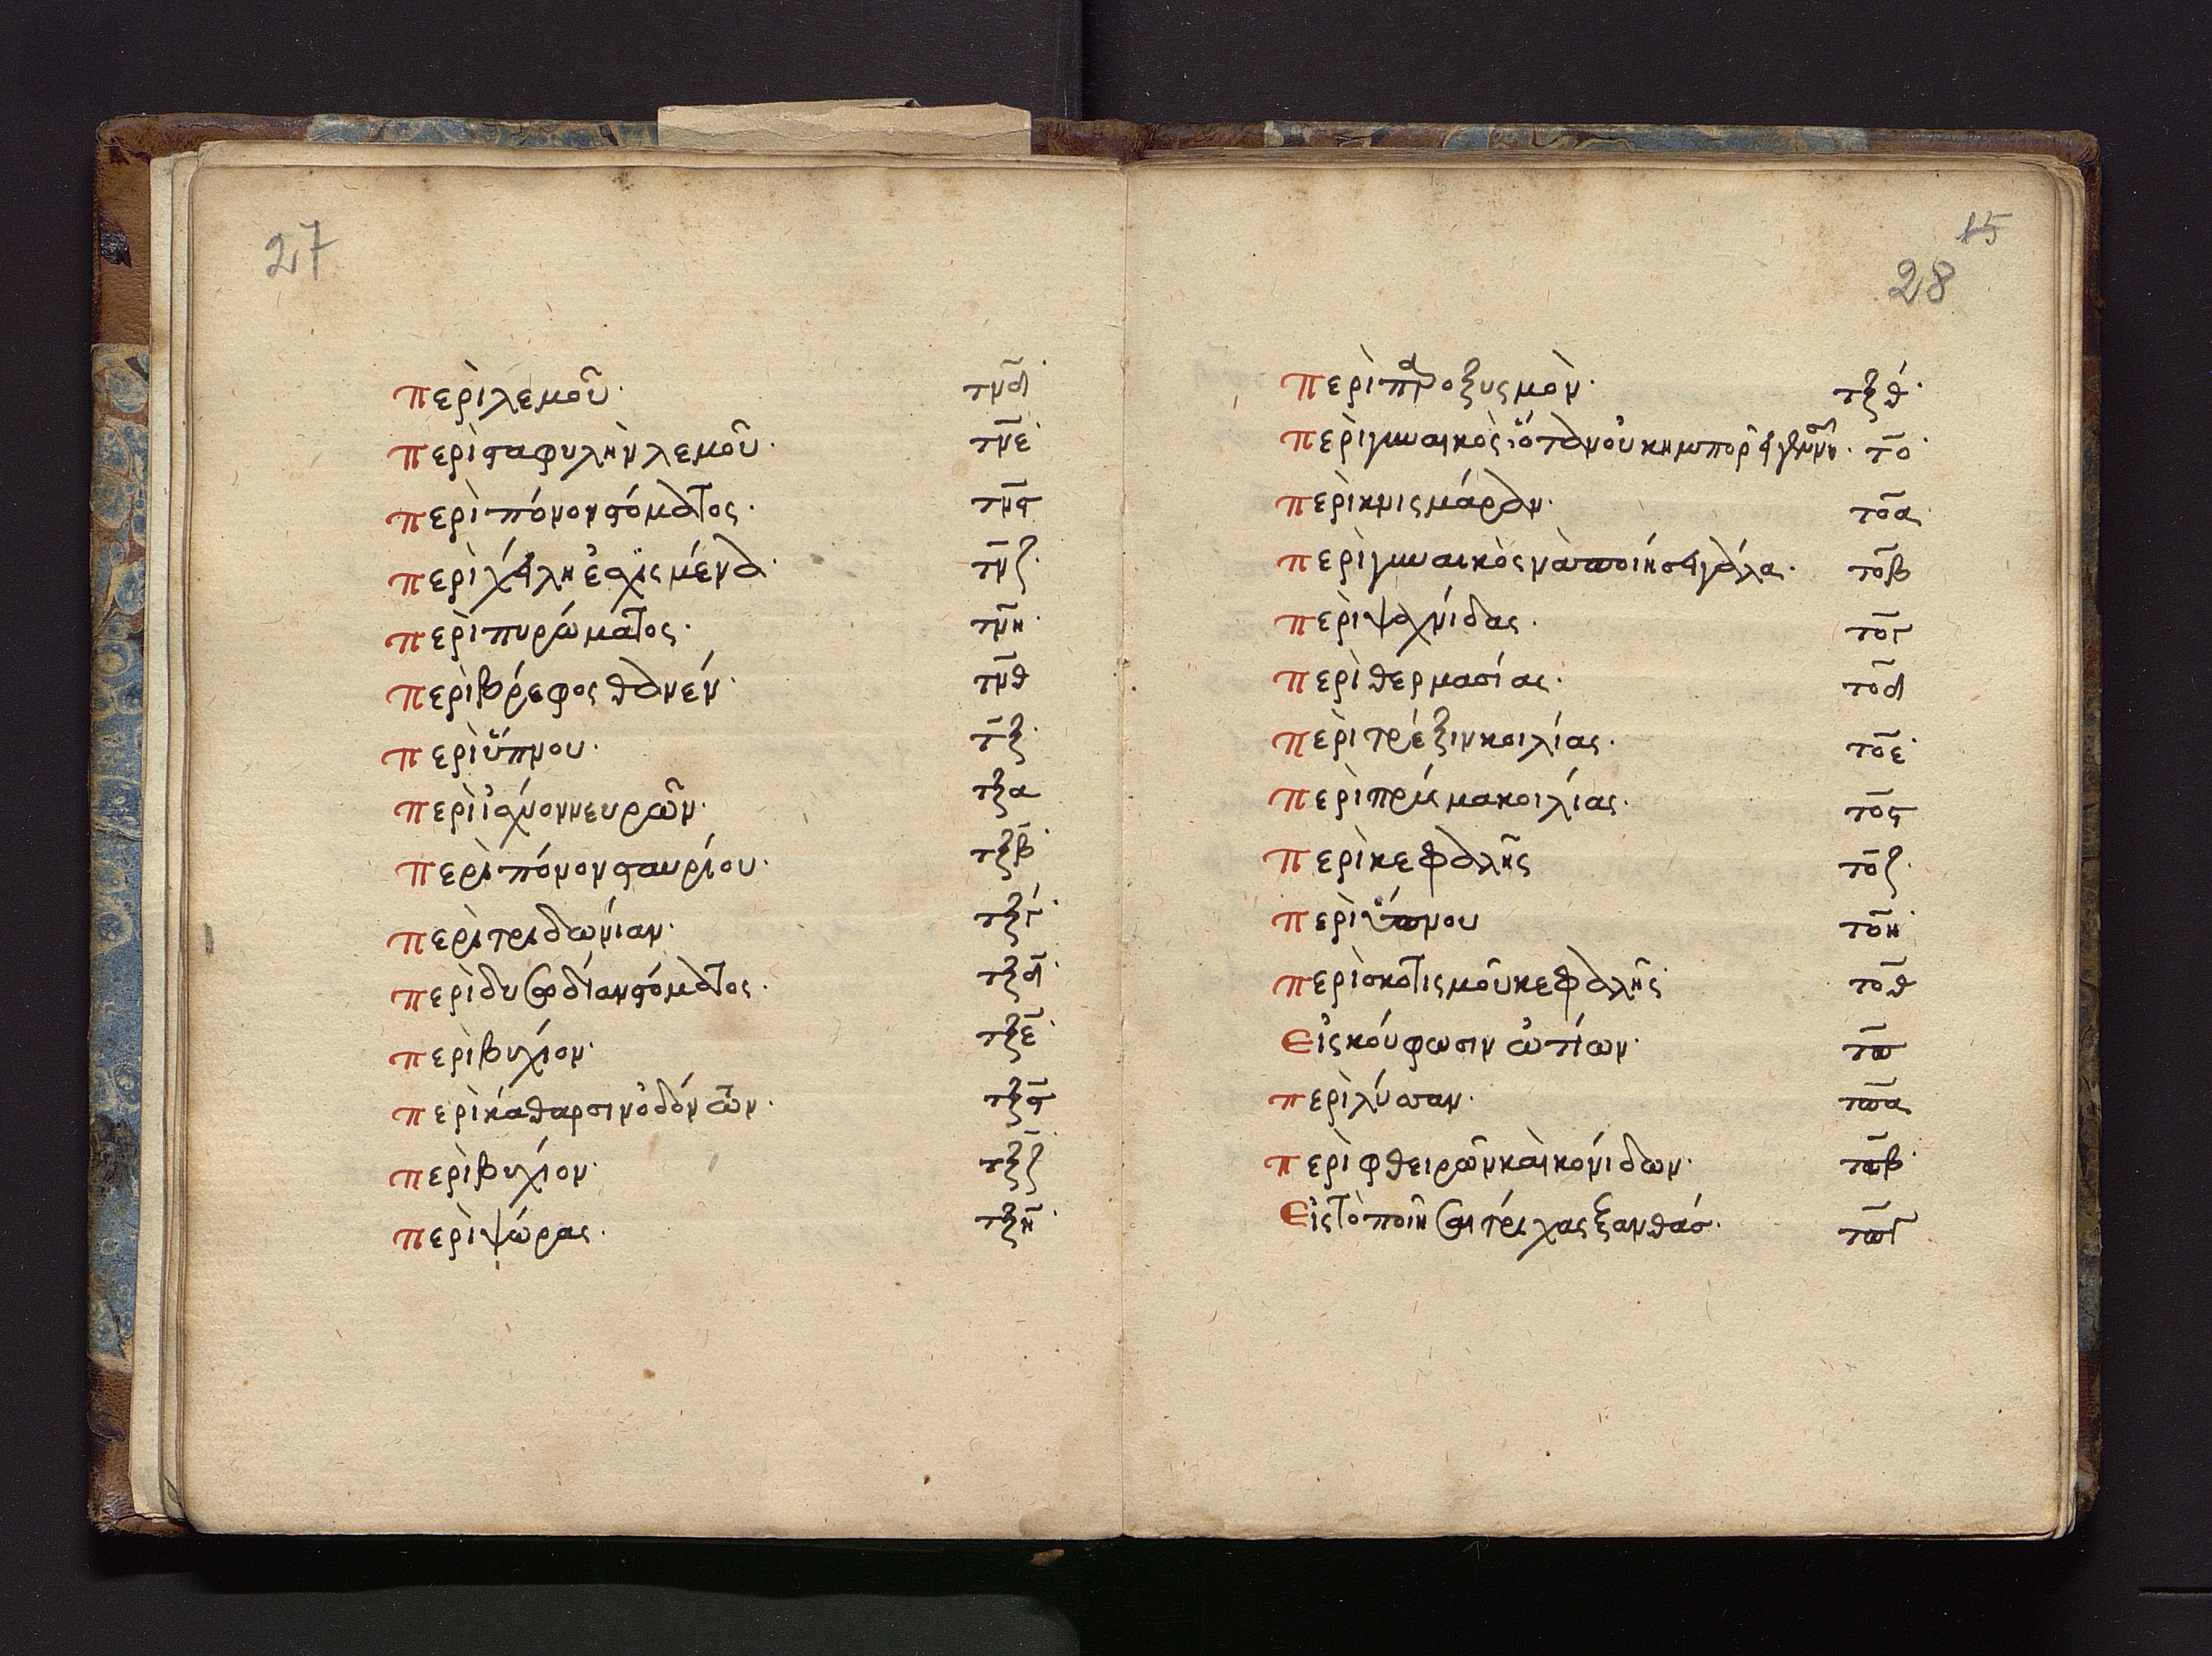 27
περὶ λεμοῦ· τνδ·
περὶ σταφυλὴν λεμοῦ· τνε·
περὶ πόνον στόματος· τνϛ
περὶ χείλη ἐσχισμένα· τνζ·
περὶ πυρώματος· τνη·
περὶ βρέφος
περὶ ὕπνου· τξ·
περὶ ἰσχύον νευρῶν· τξα
περὶ πόνον σταυρίου· τξβ·
περὶ τριδωνίαν· τξγ·
περὶ δυσωδίαν στόματος· τξδ·
περὶ βηχίον· τξε·
περὶ κάθαρσιν ὀδόντων· τξϛ
περὶ βηχίον· τξζ·
περὶ ψώρας· τξη·
15
28
περὶ παροξυσμὸν· τξθ·
περὶ γυναικὸς ὅταν οὐ το·
περὶ κνισμάραν· τοα·
περὶ γυναικὸς νὰ ποιήσει γάλα· τοβ
περὶ ψυχνίδας· τογ
περὶ θερμασίας· τοδ
περὶ τρέξιν κοιλίας· τοε·
περὶ πρίσμα κοιλίας· τοϛ
περὶ κεφαλῆς τοζ·
περὶ ὕπνου τοη·
περὶ σκοτισμοῦ κεφαλῆς· τοθ
Εἰς κούφωσιν ὠτίων· τπ
περὶ λύσσαν· τπα
περὶ φθειρῶν καὶ κονίδων· τπβ·
Εἰς τὸ ποιῆσαι τρίχας ξανθάς· τπγ